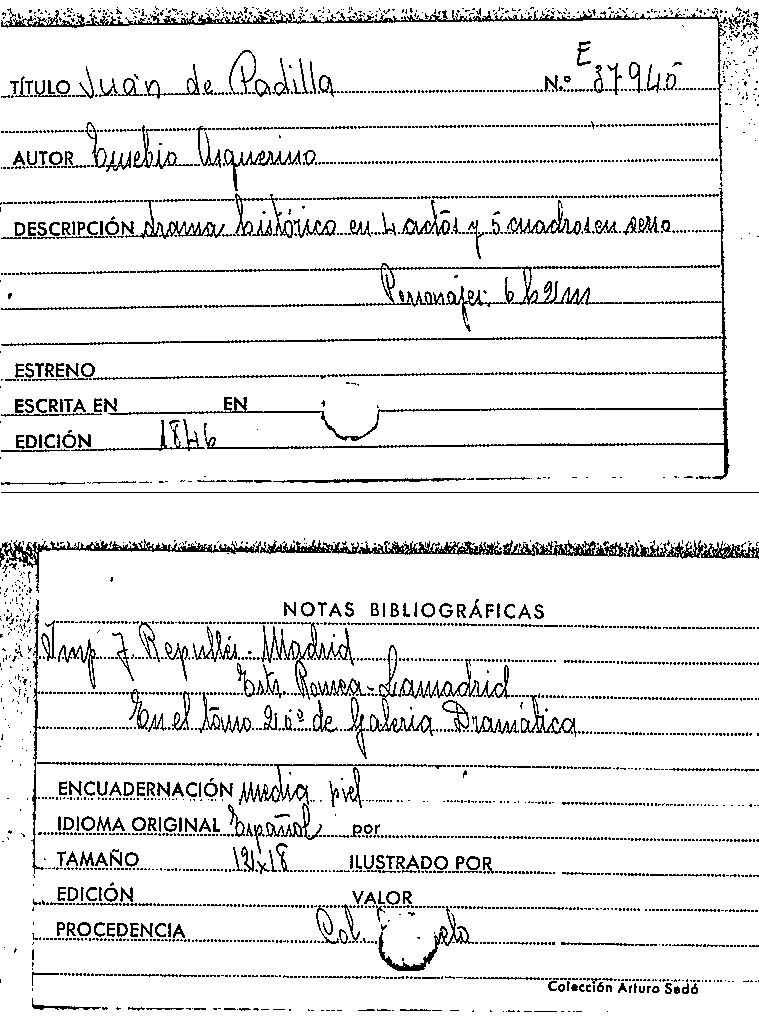 TÍTULO Juan de Padilla N.º E 37945
AUTOR Eusebio Asquerino
DESCRIPCIÓN drama histórico en 4 actos y 5 cuadros en verso
Personajes: 6 h 2 m
ESTRENO
ESCRITA EN EN
EDICIÓN 1846
NOTAS BIBLIOGRÁFICAS
Imp J. Repullés - Madrid
Estr. Romea - Lamadrid
En el tomo de Galeria Dramática
ENCUADERNACIÓN media piel
IDIOMA ORIGINAL Español por
TAMAÑO 12x18 ILUSTRADO POR
EDICIÓN VALOR
PROCEDENCIA Col.
Colección Arturo Sedó